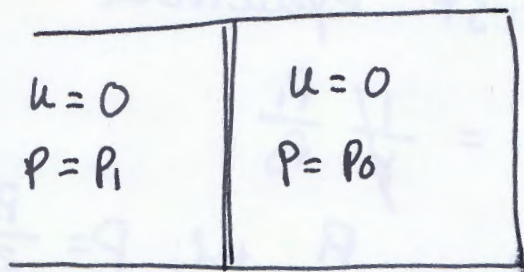 u = 0
P = P₁
u = 0
P = P₀